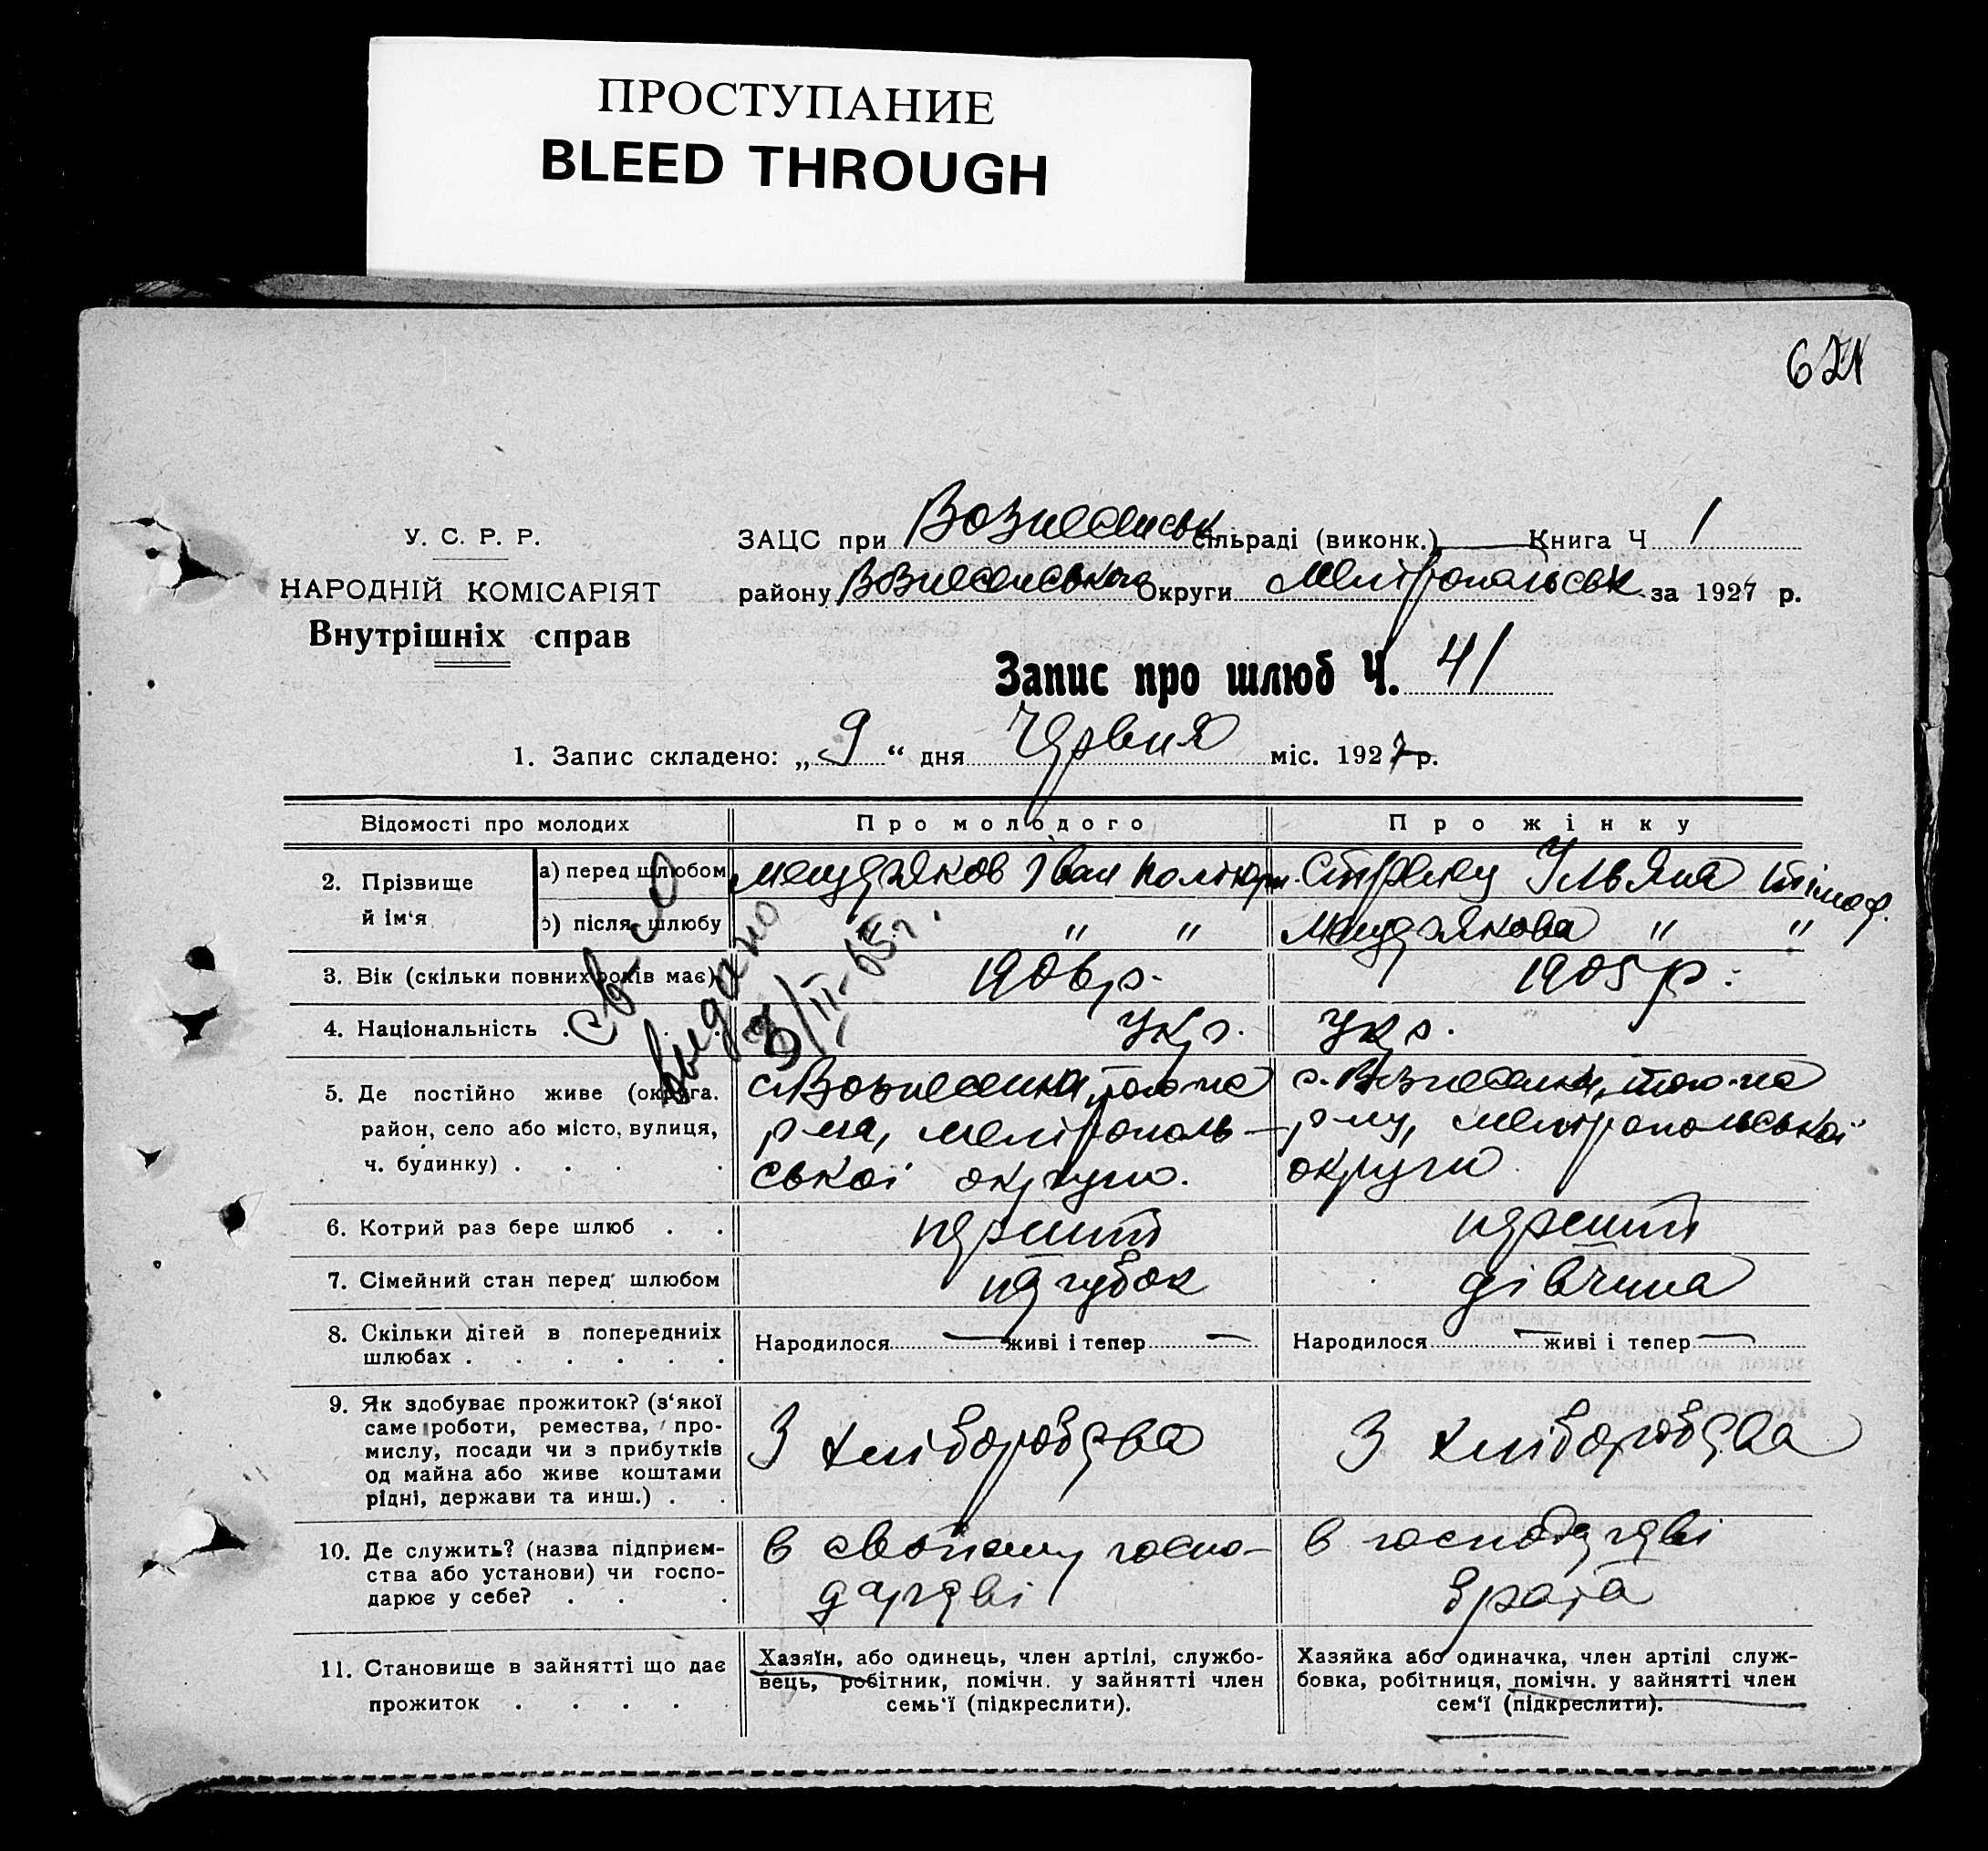 ПРОСТУПАНИЕ
BLEED THROUGH
У. С. Р. Р.
НАРОДНІЙ КОМІСАРІЯТ
Внутрішніх справ
ЗАЦС при Вознесенськ сільраді (виконк.) Книга Ч 1
району Вознесенського Округи Мелітопольськ за 1927 р.
Запис про шлюб Ч. 41
1. Запис складено: „ 9 “ дня Червня міс. 1927 р.
Відомості про молодих Про молодого Про жінку
2. Прізвище й ім‘я
а) перед шлюбом Іван Полікарп. Ульяна Тімоф.
б) після шлюбу " " " " "
3. Вік (скільки повних років має) 1906 р. 1905 р.
4. Національність . . . Укр. Укр.
св-о
видано
3/II-65г.
5. Де постійно живе (округа. с. Вознесенки, того-же с. Вознесенки, того-же
район, село або місто, вулиця, р-на, Мелітополь- р-ну, Мелітопольської
ч. будинку) . . . . ської округи. округи
6. Котрий раз бере шлюб . . перший перший
7. Сімейний стан перед шлюбом парубок дівчина
8. Скільки дітей в попередниіх Народилося живі і тепер Народилося живі і тепер
шлюбах . . . . . .
9. Як здобуває прожиток? (з‘якої
саме роботи, ремества, про-
мислу, посади чи з прибутків З хліборобства З хліборобства
од майна або живе коштами
рідні, держави та инш.) . .
10. Де служить? (назва підприєм- в своїому госпо- в господарстві
ства або установи) чи госпо- дарстві брата
дарює у себе? . . .
11. Становище в зайнятті що дає
прожиток . . . . .
Хазяїн, або одинець, член артілі, службо-
вець, робітник, помічн. у зайнятті член
семь‘ї (підкреслити).
Хазяйка або одиначка, член артілі служ-
бовка, робітниця, помічн. у зайнятті член
сем‘ї (підкреслити).